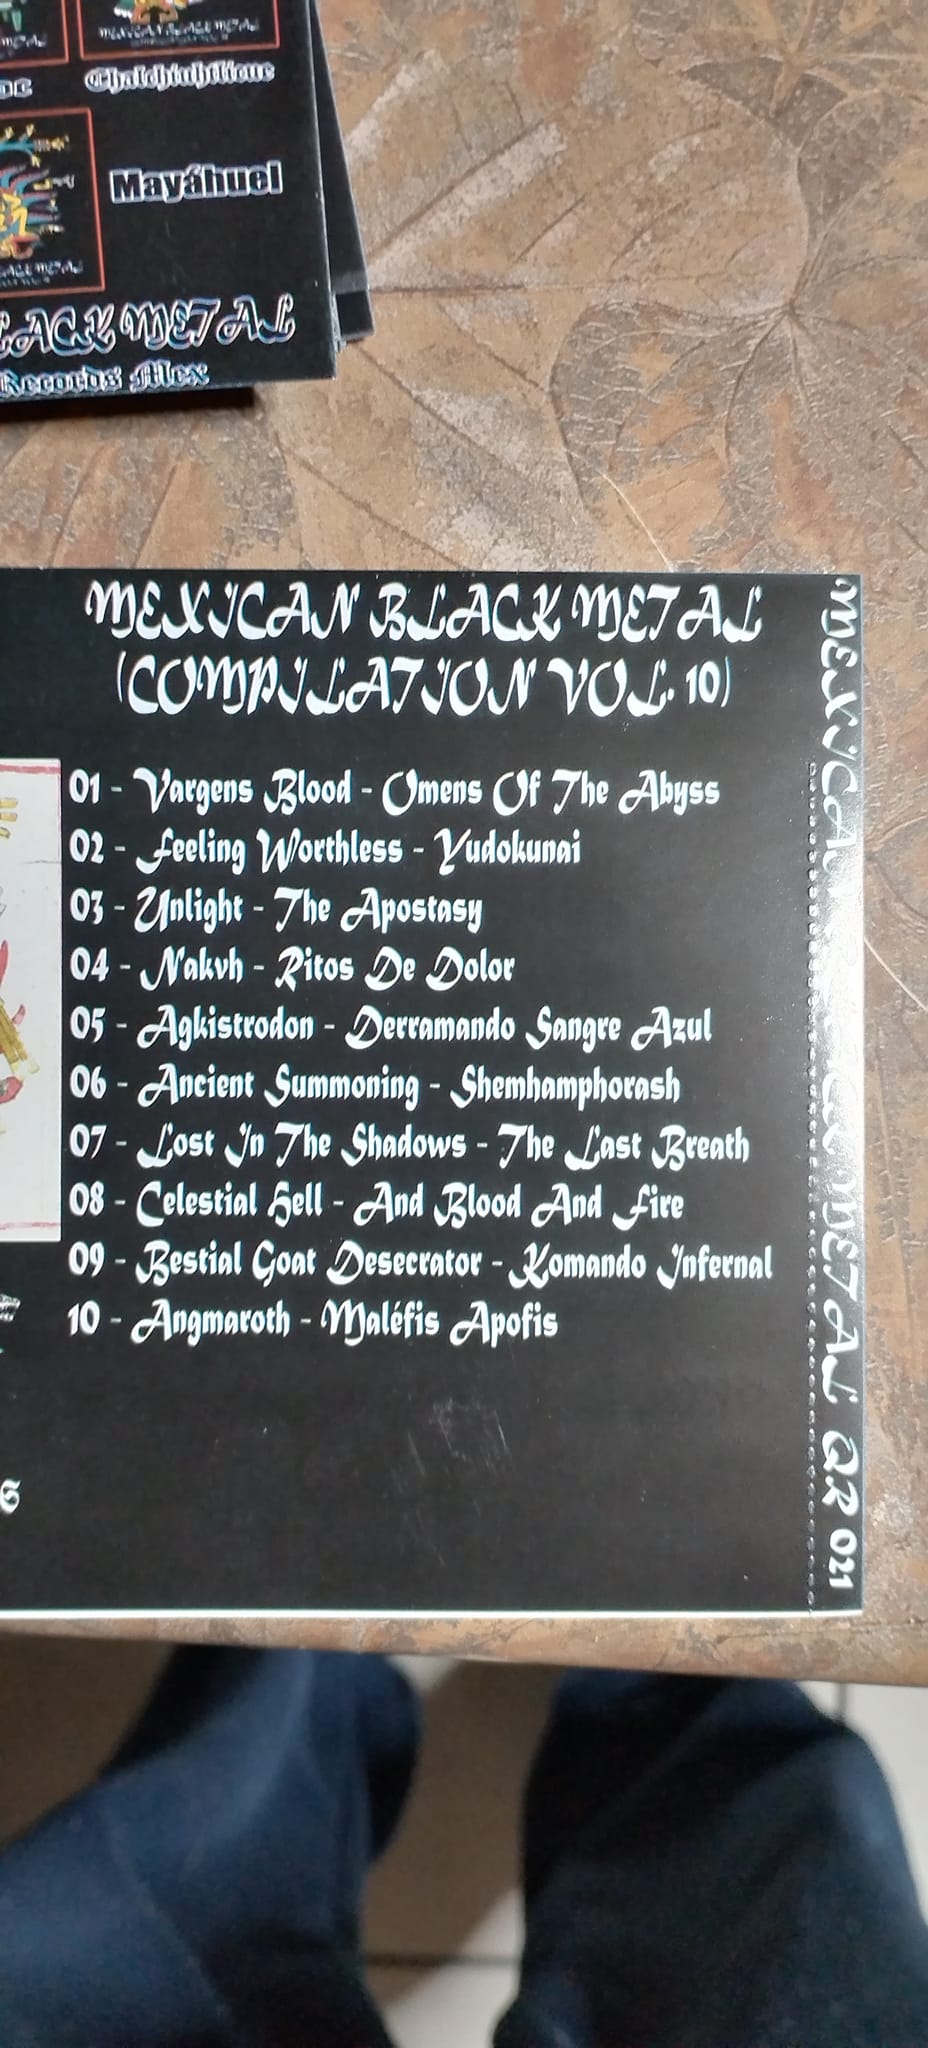 MEXICAN BLACK METAL
Chalchiuhtlicue
Mayáhuel
BLACK METAL
Records Mex
MEXICAN BLACK METAL
(COMPILATION VOL. 10)
01 - Vargens Blood - Omens Of The Abyss
02 - Feeling Worthless - Yudokunai
03 - Unlight - The Apostasy
04 - Nakvh - Ritos De Dolor
05 - Agkistrodon - Derramando Sangre Azul
06 - Ancient Summoning - Shemhamphorash
07 - Lost In The Shadows - The Last Breath
08 - Celestial Hell - And Blood And Fire
09 - Bestial Goat Desecrator - Komando Infernal
10 - Angmaroth - Maléfis Apofis
MEXICAN BLACK METAL QR 021